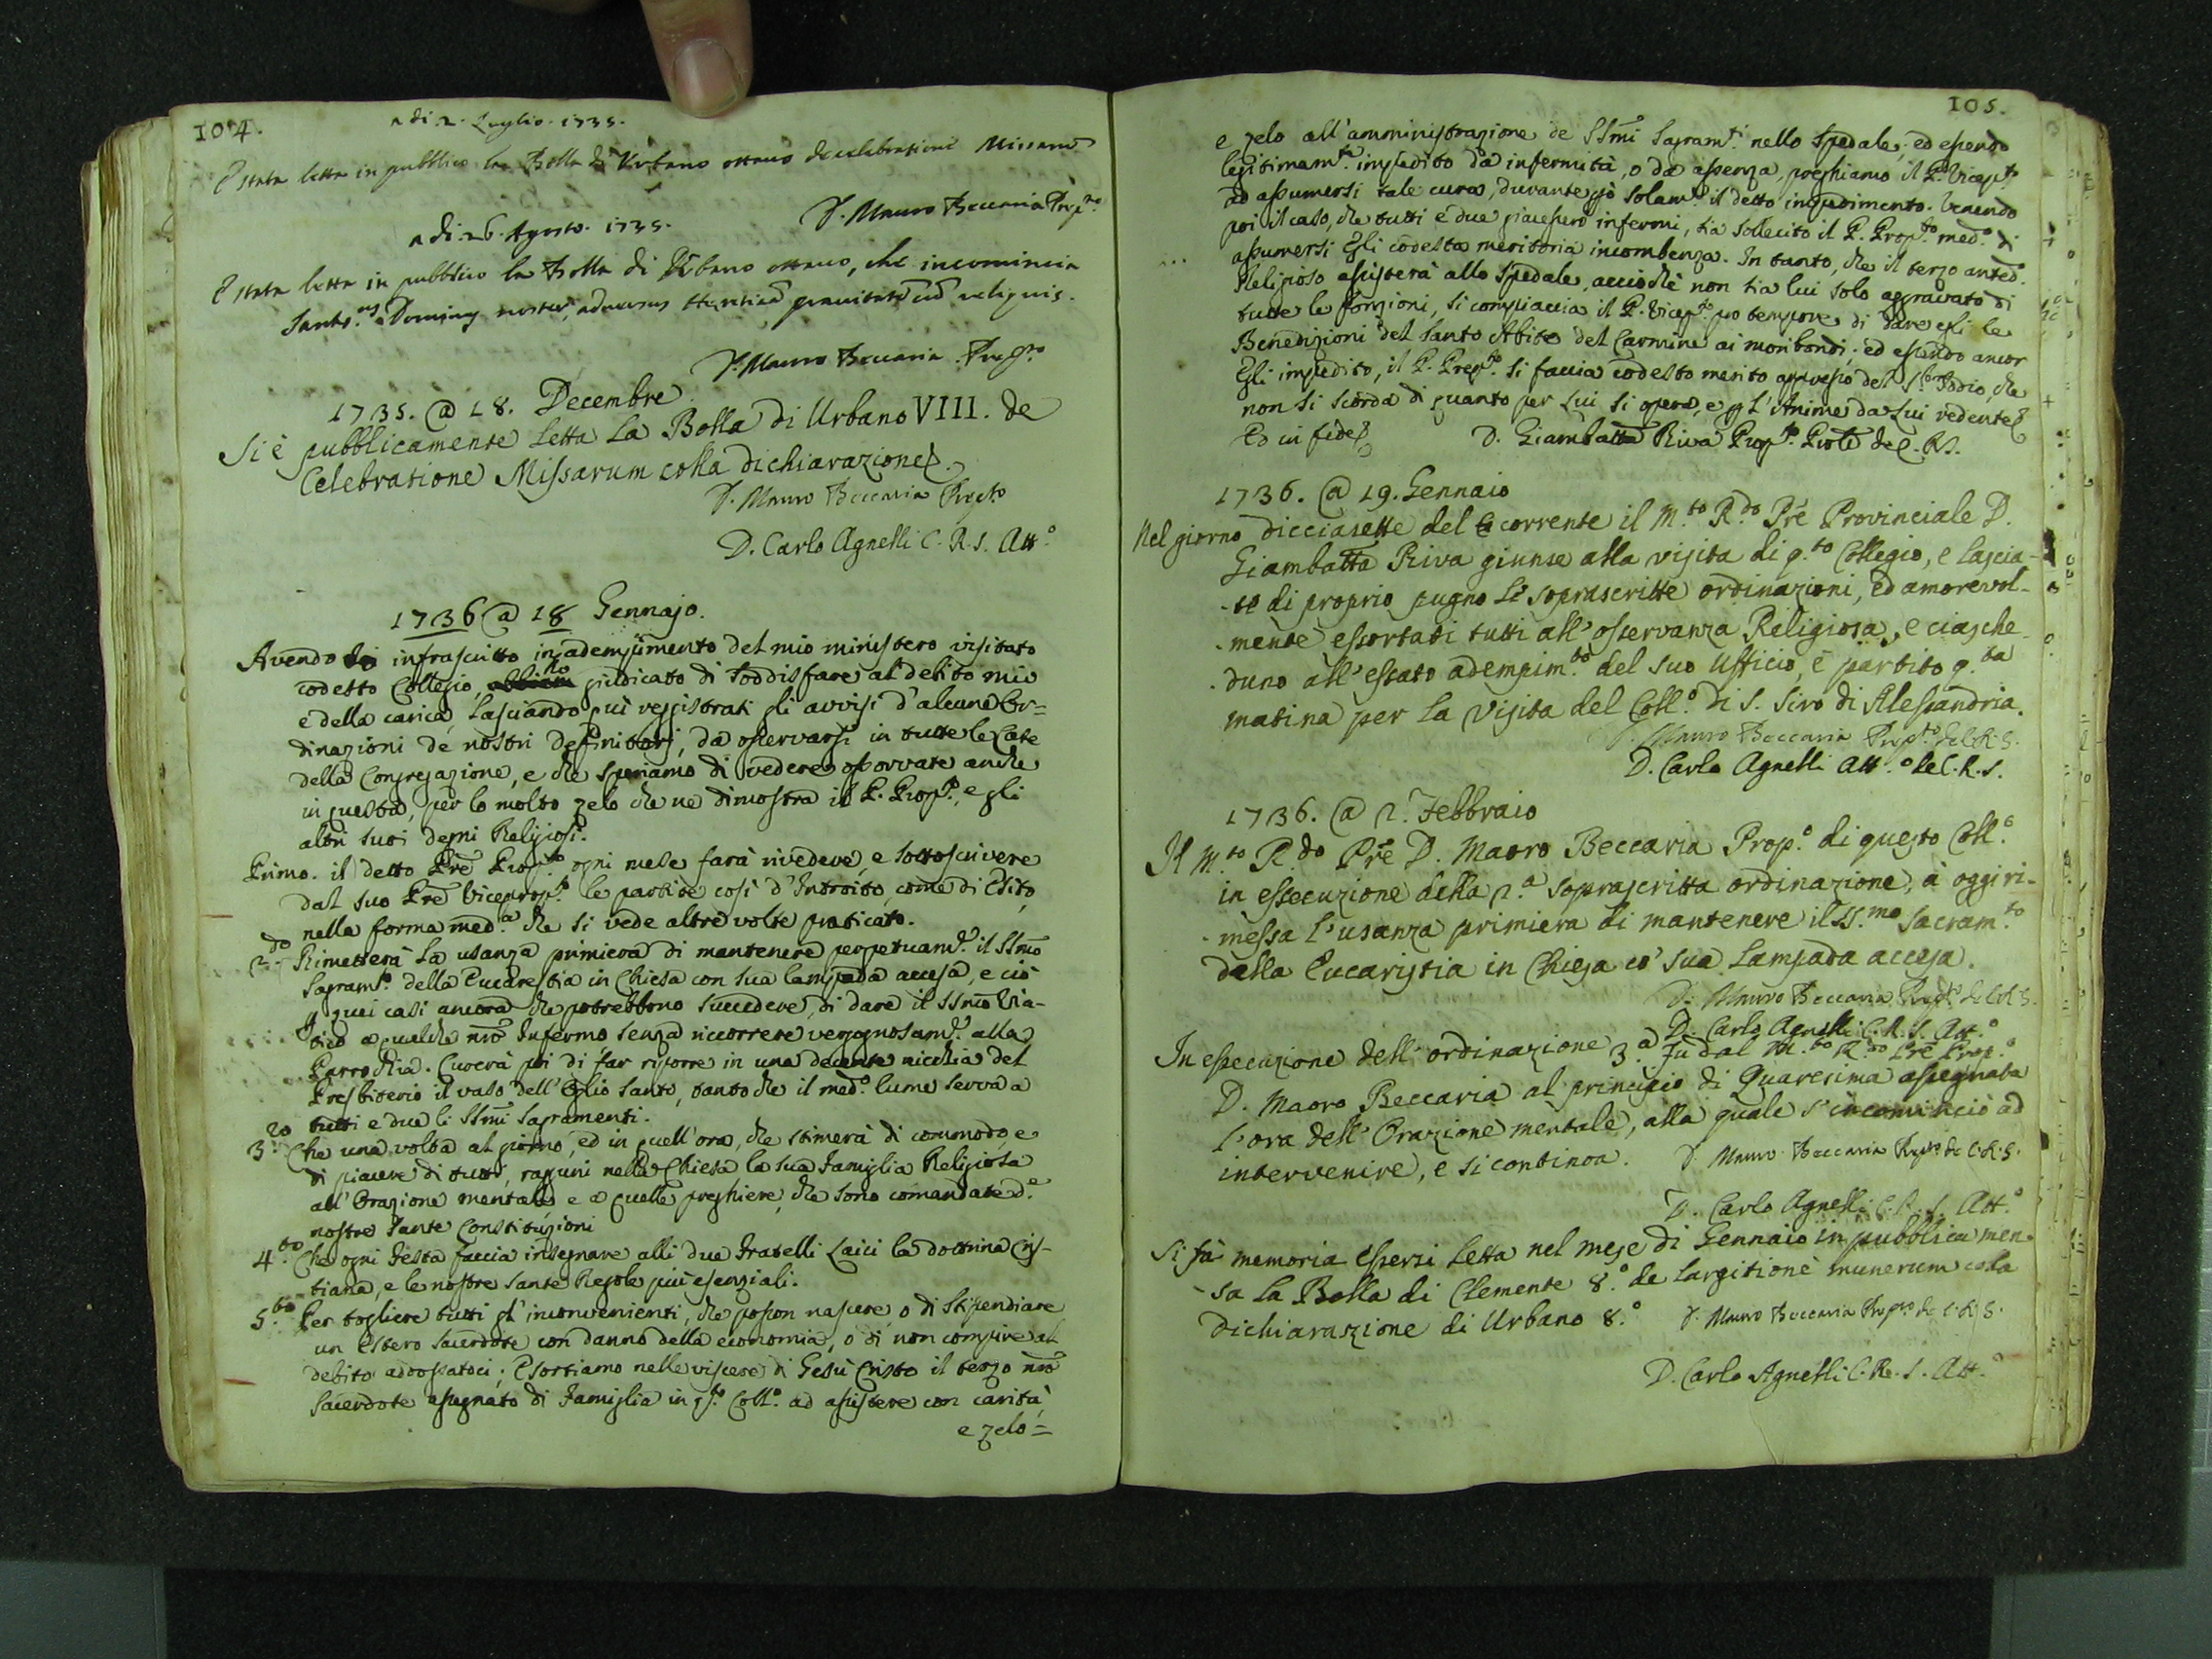 104.
a di 2. Luglio. 1735.
È stata letta in pubblico la Bolla di Urbano ottavo de celebratione Missarum
D. Mauro Beccaria Prep.to
a di 26. Agosto. 1735.
È stata letta in pubblico la Bolla di Urbano ottavo, che incomincia
Sanctis.us Dominus noster, adversus Hereticā pravitatē cū reliquis.
D. Mauro Beccaria Prep.to
1735. @ 18. Decembre
Si è pubblicamente letta la Bolla di Urbano VIII. de
Celebratione Missarum colla dichiarazione.
D. Mauro Beccaria Prep.to
D. Carlo Agnelli C. R. S. Att.o
1736 @ 18 Gennajo.
Avendo infrascritto in adempimento del mio ministero visitato
codesto Collegio, hò giudicato di soddisfare al debito mio
e della carica, lasciando quì reggistrati gli avvisi d'alcune Or=
dinazioni de nostri Definitorj, da osservarsi in tutte le Case
della Congregazione, e che speriamo di vedere osservate anche
in questa, per lo molto zelo che ne dimostra il P. Prop.to, e gli
altri suoi degni Religiosi.
Primo. il detto Prē Prop.to ogni mese farà rivedere, e sottoscrivere
dal suo Prē Viceprop.to le partite così d'Introito, come di Esito,
nella forma med.a che si vede altre volte praticato.
2.do Rimetterà la usanza primiera di mantenere perpetuam.te il SSmo
Sagram.to della Eucarestia in Chiesa con sua lampada accesa, e ciò
p quei casi ancora che potrebbono succedere, di dare il SSmo Via-
tico a qualche nrō Infermo senza riccorrere vergognosam.te alla
Parrochia. Curerà poi di far riporre in una decente nicchia del
Presbiterio il vaso dell'Oglio Santo, tanto che il med.o lume serva a
tutti e due li SSmi Sagramenti.
3.zo Che una volta al giorno, ed in quell'ora, che stimerà di commodo e
di piacere di tutti, raguni nella Chiesa la sua Famiglia Religiosa
all'Orazione mentale, e a quelle preghiere, che sono comandate d.e
nostre Sante Constituzioni
4.to Che ogni Festa faccia insegnare alli due Fratelli Laici la dottrina Cris-
tiana, e le nostre Sante Regole più esenziali.
5.to Per togliere tutti gl'inconvenienti, che posson nascere, o di Stipendiare
un Estero Sacerdote con danno della economia, o di non compire al
debito addossatoci; Esortiamo nelle viscere di Gesù Cristo il terzo nrō
Sacerdote assegnato di Famiglia in q.to Coll.o ad assistere con carità,
e zelo=
105.
e zelo all'amministrazione de SSmi Sagram.ti nello Spedale, ed essendo
legitimam.te impedito da infermità, o da assenza, preghiamo il P. Vicep.to
ad assumersi tale cura, durante però solam.te il detto impedimento. Venendo
poi il caso, che tutti e due giacessero infermi, sia sollecito il P. Prop.to med.o di
assumersi Egli codesta meritoria incombenza. In tanto, che il terzo anted.o
Religioso assisterà allo Spedale, acciochè non sia lui solo aggravato di
tutte le fonzioni, si compiaccia il P. Vicep.to pro tempore di dare egli le
Benedizioni del Santo Abito del Carmine ai moribondi; ed essendo ancor
Egli impedito, il P. Prep.to si faccia codesto merito appresso del Iddio, che
non si scorda di quanto per Lui si opera, e p l'Anime da Lui redente
Ed in fede
D. Giambatta Riva Prep.to Prōle de C. R. S.
1736. @ 19. Gennaio
Nel giorno dicciasette del corrente il M.to R.do Prē Provinciale D.
Giambatta Riva giunse alla visita di q.to Collegio, e lascia-
-te di proprio pugno le soprascritte ordinazioni, ed amorevol-
-mente essortati tutti all'osservanza Religiosa, e ciasche-
-duno all'essato adempim.to del suo Ufficio, è partito q.ta
matina per la visita del Coll.o di S. Siro di Alessandria.
D. Mauro Beccaria Prep.to de C. R. S.
D. Carlo Agnelli Att.o de C. R. S.
1736. @ 2. Febbraio
Il M.to R.do Prē D. Mauro Beccaria Prop.o di questo Coll.o
in essecuzione della 2.a soprascritta ordinazione, à oggi ri-
-messa l'usanza primiera di mantenere il SS.mo Sacram.to
della Eucaristia in Chiesa cō sua Lampada accesa.
D. Mauro Beccaria Prep.to de C. R. S.
D. Carlo Agnelli C. R. S. Att.o
In essecuzione dell'ordinazione 3.a Fù dal M.to R.do Prē Prop.o
D. Maoro Beccaria al principio di Quaresima assegnata
l'ora dell'Orazione mentale, alla quale s'incominciò ad
intervenire, e si continoa.
D. Mauro Beccaria Prep.to de C. R. S.
D. Carlo Agnelli C. R. S. Att.o
Si fà memoria essersi letta nel mese di Gennaio in pubblica men-
-sa la Bolla di Clemente 8.o de largitione munerum colla
dichiarazione di Urbano 8.o
D. Mauro Beccaria Prep.to de C. R. S.
D. Carlo Agnelli C. R. S. Att.o